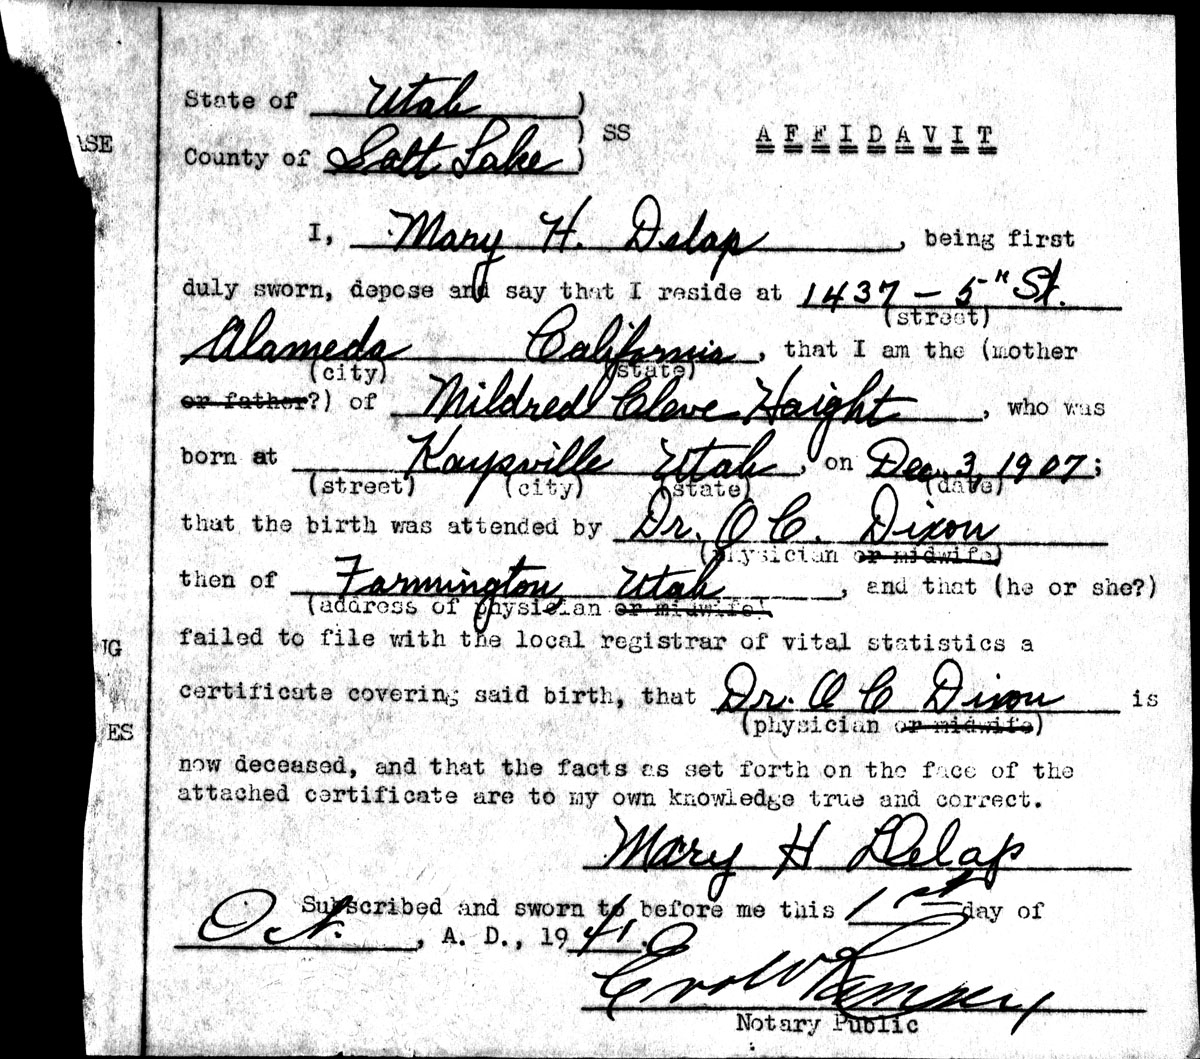 State of Utah )
) SS AFFIDAVIT
ASE
County of Salt Lake )
I, Mary H. Delap, being first
duly sworn, depose and say that I reside at 1437 - 5th St.
(street)
Alameda California, that I am the (mother
(city) (state)
or father?) of Mildred Cleve Haight, who was
born at Kaysville Utah, on Dec. 3, 1907;
(street) (city) (state) (date)
that the birth was attended by Dr. O C. Dixon
(physician or midwife)
then of Farmington Utah, and that (he or she?)
(address of physician or midwife)
failed to file with the local registrar of vital statistics a
UG
certificate covering said birth, that Dr. O C Dixon is
(physician or midwife)
ES
now deceased, and that the facts as set forth on the face of the
attached certificate are to my own knowledge true and correct.
Mary H Delap
Subscribed and sworn to before me this 1st day of
Oct., A. D., 1941.
Notary Public